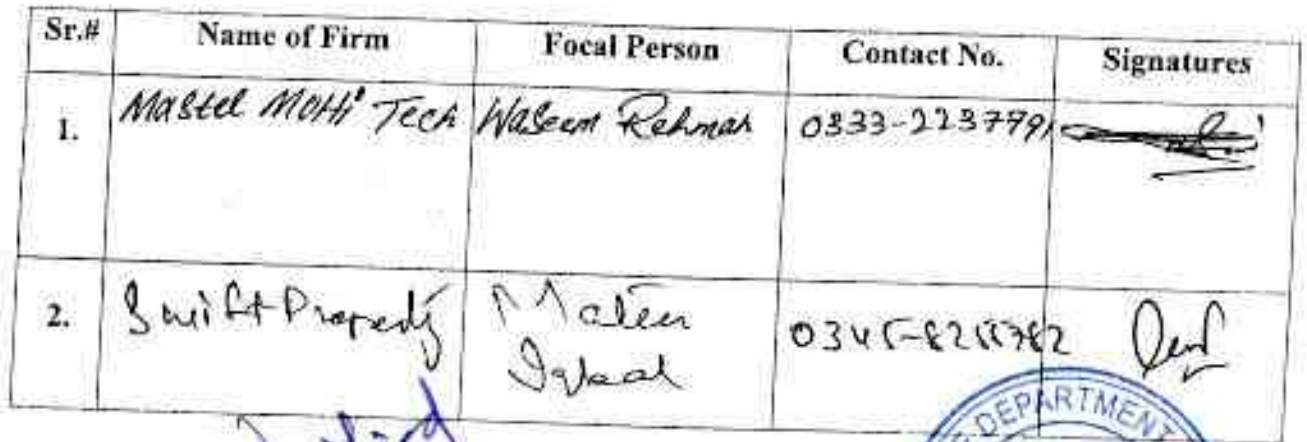 Sr.# Name of Firm Focal Person Contact No. Signatures
1. Mastel MOHI Tech Waseem Rehman 0333-2237791
2. Swift Property Mateen
Iqbal
DEPARTMENT